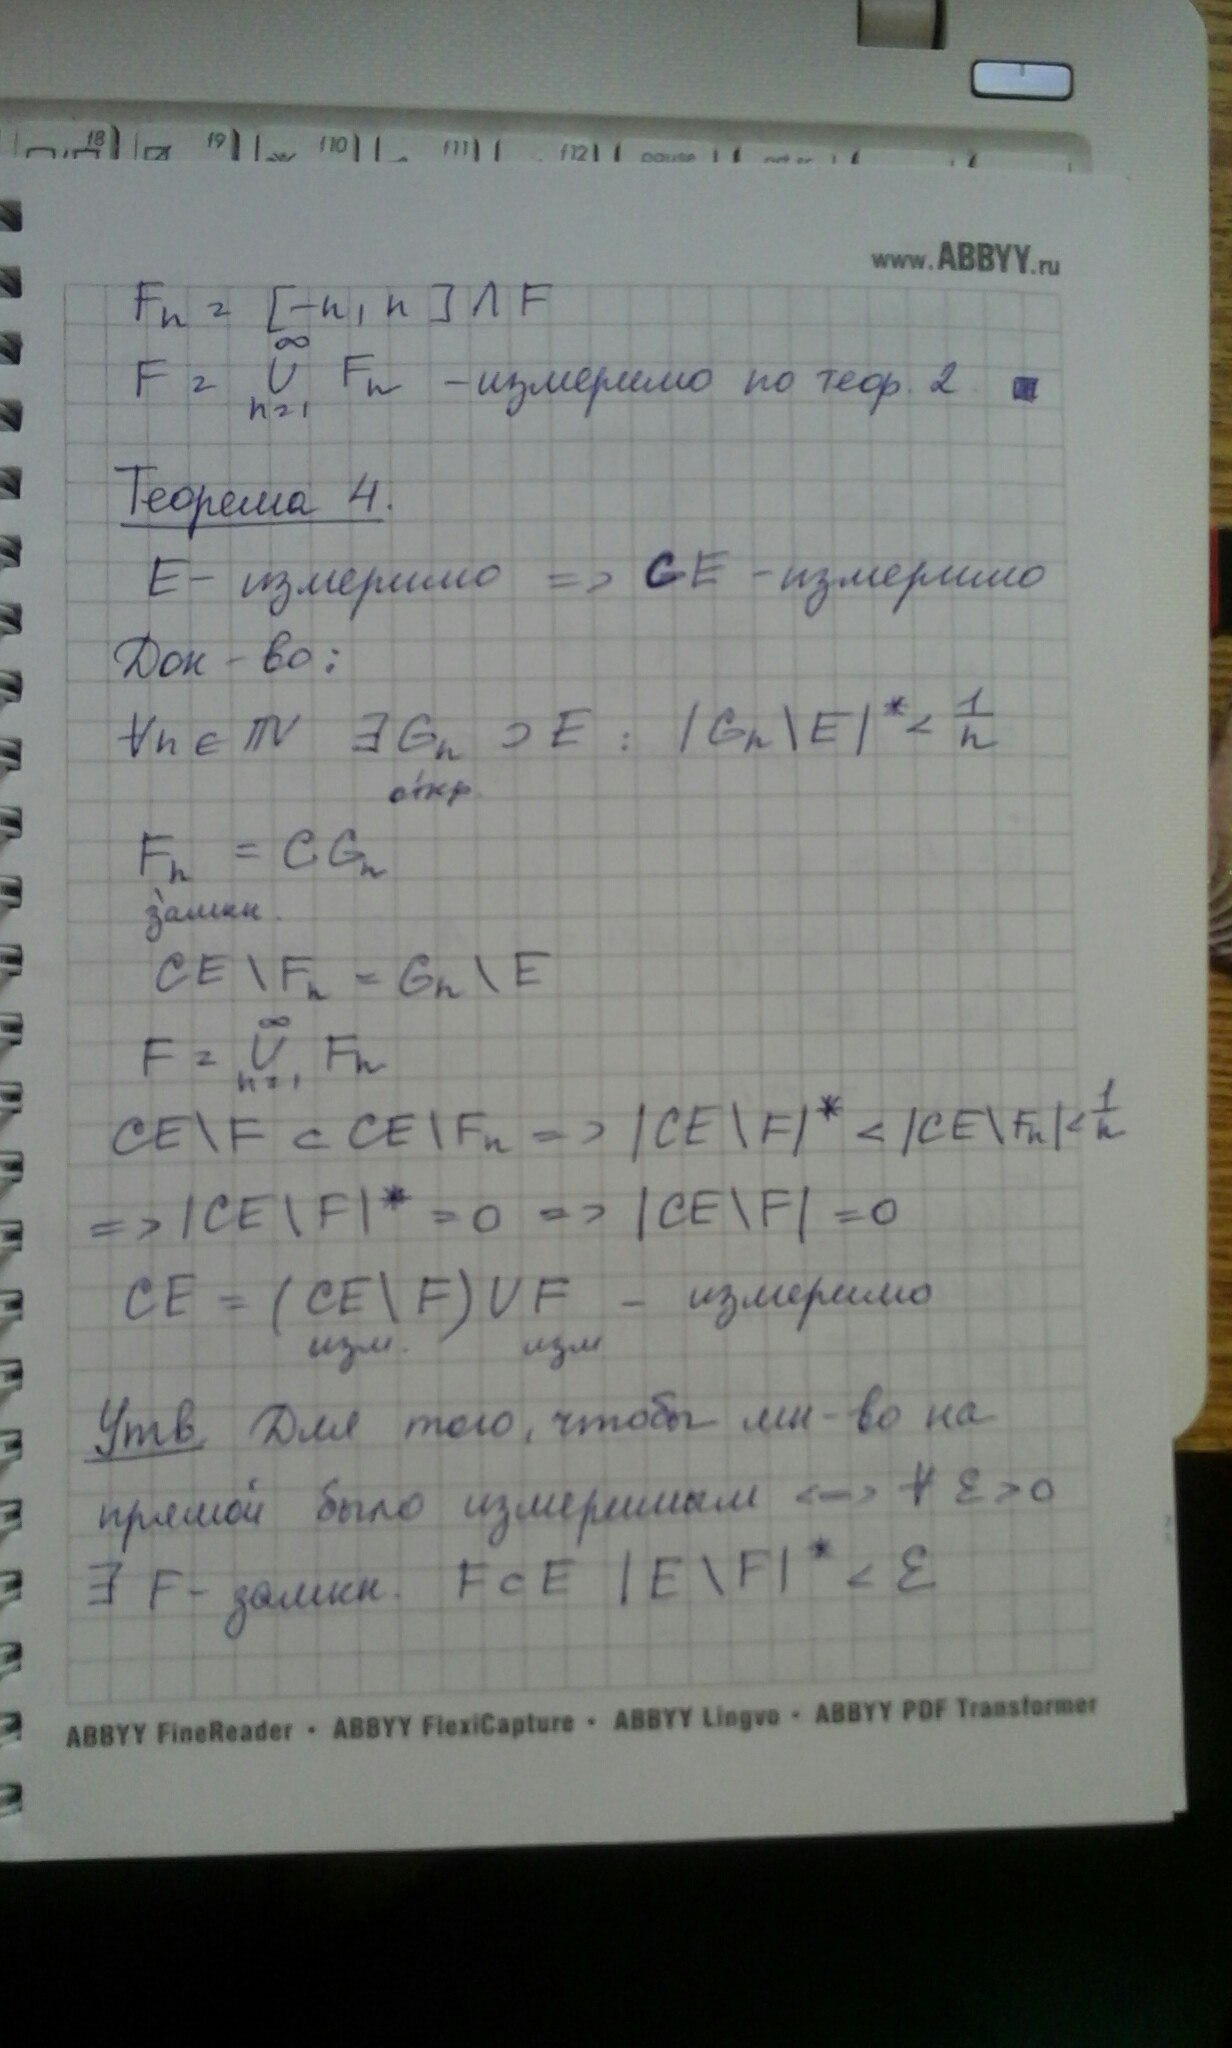 f8 f9 f10 f11 f12 pause
www.ABBYY.ru
Fn = [-n, n] ∩ F
F = ∞ ∪ n=1 Fn – измеримо по теор. 2 ■
Теорема 4.
E – измеримо => CE – измеримо
Док-во:
∀n∈ℕ ∃Gn ⊃ E : |Gn\E|* < 1/n
откр.
Fn = CGn
замкн.
CE\Fn = Gn\E
F = ∞ ∪ n=1 Fn
CE\F ⊂ CE\Fn => |CE\F|* < |CE\Fn| < 1/n
=> |CE\F|* = 0 => |CE\F| = 0
CE = (CE\F) ∪ F – измеримо
изм. изм
Утв. Для того, чтобы мн-во на
прямой было измеримым <=> ∀ ε>0
∃ F – замкн. F⊂E |E\F|* < ε
ABBYY FineReader • ABBYY FlexiCapture • ABBYY Lingvo • ABBYY PDF Transformer